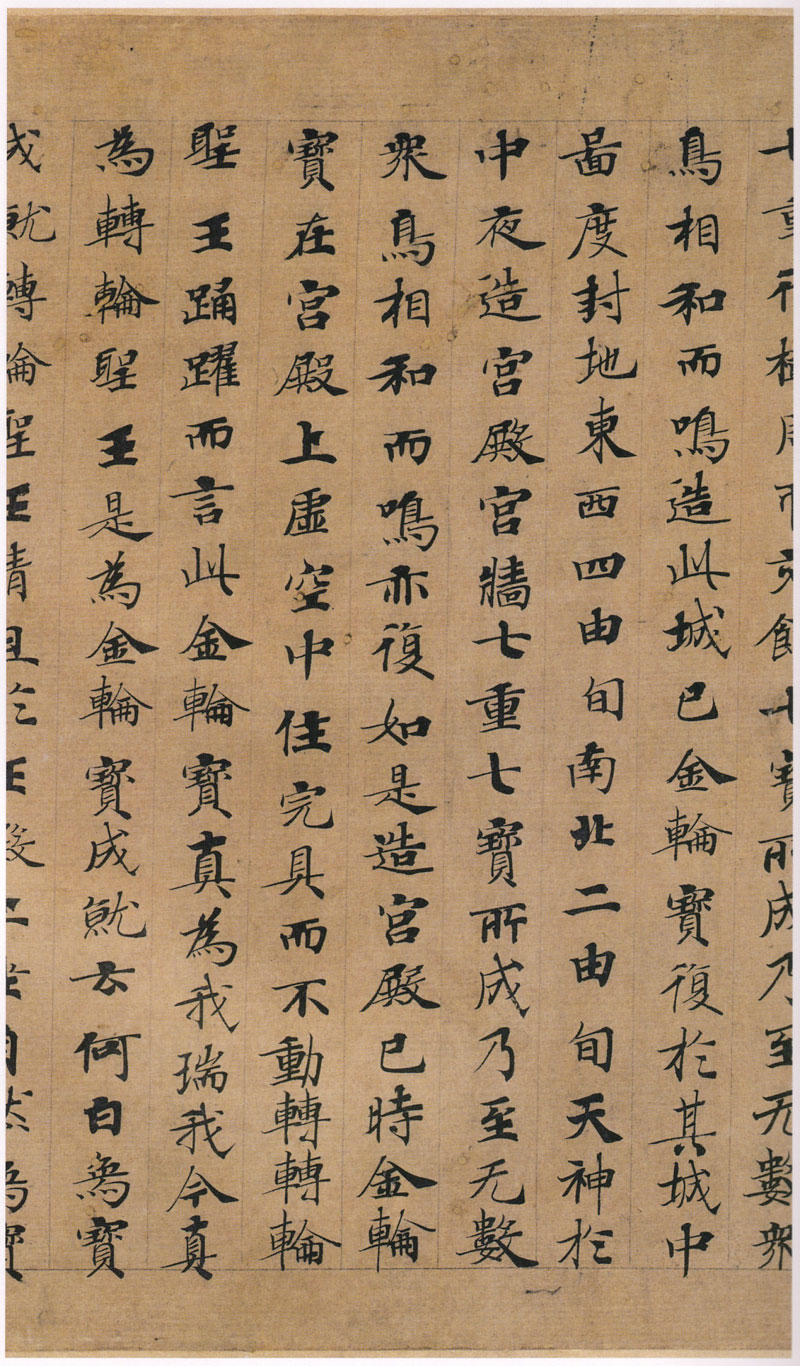 七重行樹周帀交飾七寶所成乃至无數衆
鳥相和而鳴造此城已金輪寶復於其城中
啚度封地東西四由旬南北二由旬天神於
中夜造宮殿宮牆七重七寶所成乃至无數
衆鳥相和而鳴亦復如是造宮殿已時金輪
寶在宮殿上虛空中住完具而不動轉轉輪
聖王踊躍而言此金輪寶真為我瑞我今真
為轉輪聖王是為金輪寶成就云何白為寶
成就轉輪聖王清旦於正殿上坐自然為寶